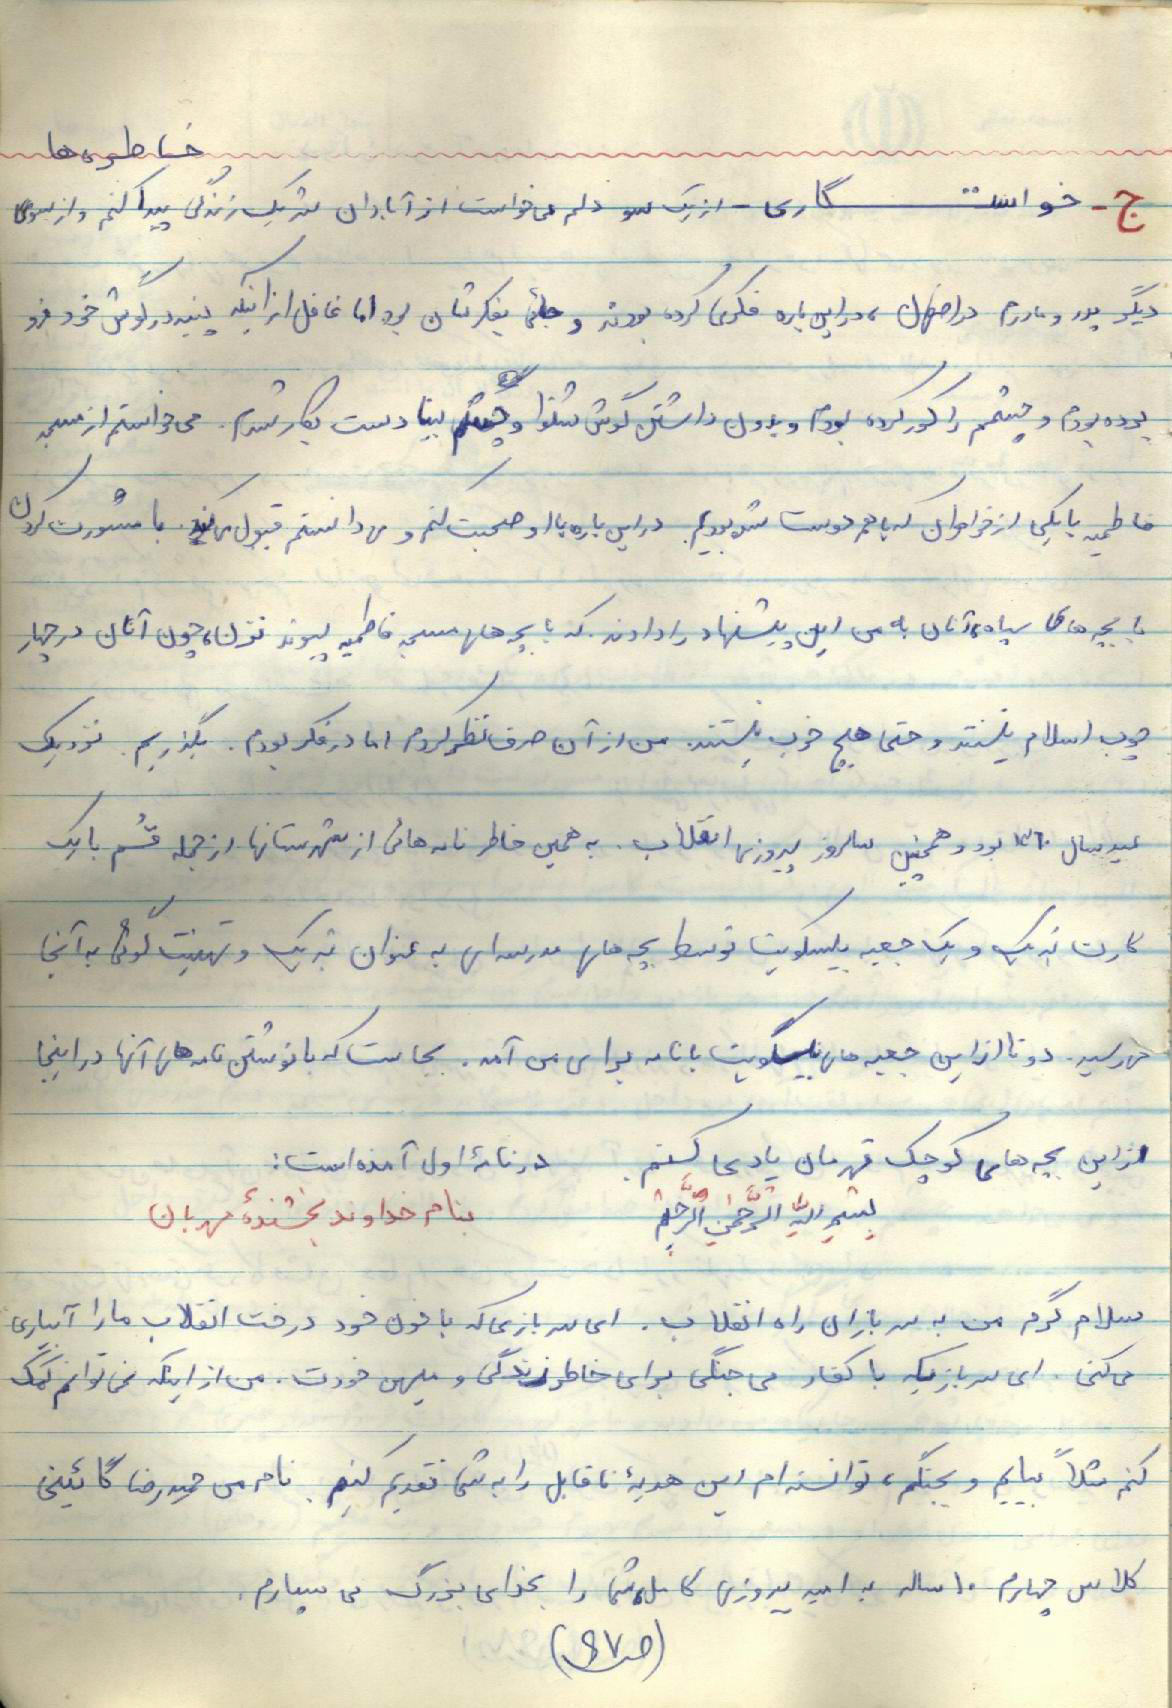 خاطره ها
ج - خواستگاری - از یک سو دلم می خواست از آبادان شریک زندگی پیدا کنم و از سوی
دیگر پدر و مادرم در اصفهان، در این باره فکری کرده بودند و جائی بفکرشان بود اما غافل از اینکه پنبه در گوش خود فرو
برده بودم و چشمم را کور کرده بودم و بدون داشتن گوش شنوا و چشم بینا دست بکار شدم. می خواستم از مسجد
فاطمیه با یکی از خواهران که با هم دوست شده بودیم. در این باره با او صحبت کنم و می دانستم قبول می کند. با مشورت کردن
با بچه های سپاه، آنان به من این پیشنهاد را دادند. که با بچه های مسجد فاطمیه پیوند نزن، چون آنان در چهار
چوب اسلام نیستند و حتی هیچ خوب نیستند. من از آن صرف نظر کردم اما در فکر بودم. بگذریم. نزدیک
عید سال ۱۳۶۰ بود و همچنین سالروز پیروزی انقلاب. به همین خاطر نامه هائی از شهرستانها از جمله قم با یک
کارت تبریک و یک جعبه بیسکویت توسط بچه های مدرسه ای به عنوان تبریک و تهنیت گوئی به آنجا
می رسید. دو تا از این جعبه های بیسگویت با نامه برای من آمد. بجاست که با نوشتن نامه های آنها در اینجا
از این بچه های کوچک قهرمان یادی کنم. در نامهٔ اول آمده است:
بِسْمِ اللّهِ الرَّحْمنِ الرَّحیْمِ بنام خداوند بخشندهٔ مهربان
سلام گرم من به سربازان راه انقلاب. ای سربازی که با خون خود درخت انقلاب ما را آبیاری
می کنی. ای سربازیکه با کفار می جنگی برای خاطر زندگی و میهن خودت. من از اینکه نمی توانم کمک
کنم مثلاً بیایم و بجنگم، توانسته ام این هدیهٔ ناقابل را به شما تقدیم کنم. نام من حمیدرضا گائینی
کلاس چهارم ۱۰ ساله به امید پیروزی کامل، شما را بخدای بزرگ می سپارم.
(ص ۶۷)